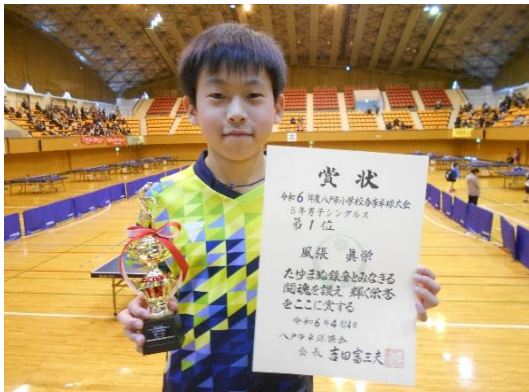 賞状
令和6年度八戸市小学校春季卓球大会
5年男子シングルス
第1位
風張 眞栄
たゆまぬ鍛磨とみなぎる
闘魂を讃え 輝く栄誉
をここに賞する
令和6年4月14日
八戸市卓球協会
会長 吉田富三夫